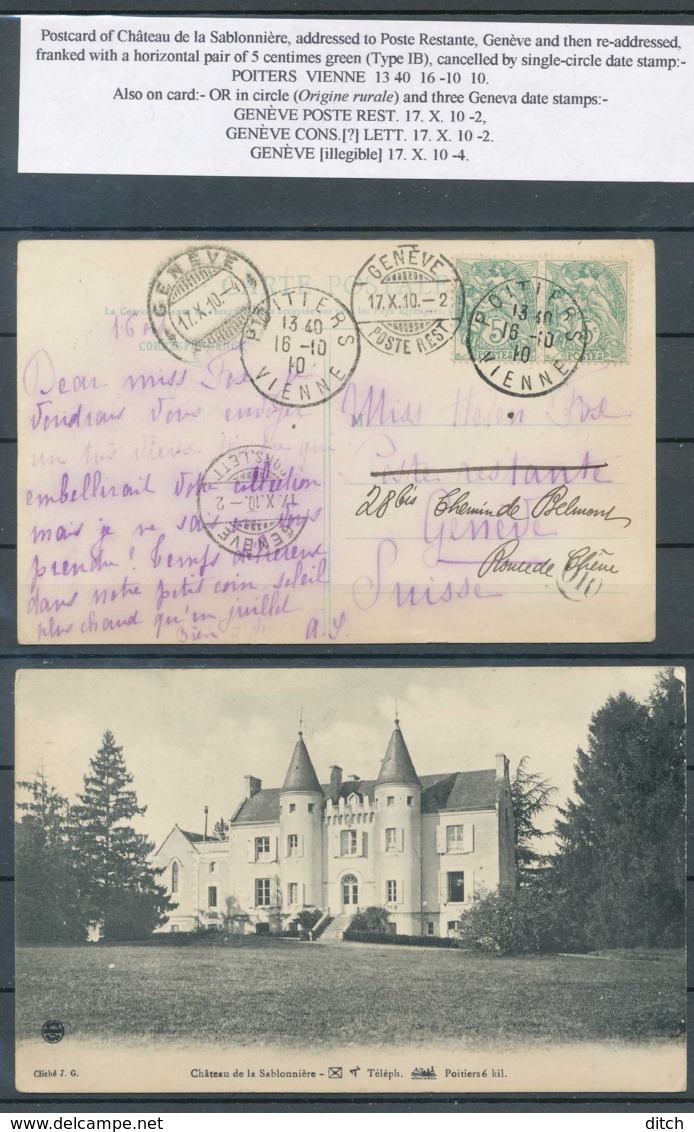 Postcard of Château de la Sablonnière, addressed to Poste Restante, Genève and then re-addressed,
franked with a horizontal pair of 5 centimes green (Type IB), cancelled by single-circle date stamp:-
POITERS VIENNE 13 40 16 -10 10.
Also on card:- OR in circle (Origine rurale) and three Geneva date stamps:-
GENÈVE POSTE REST. 17. X. 10 -2,
GENÈVE CONS.[?] LETT. 17. X. 10 -2.
GENÈVE [illegible] 17. X. 10 -4.
CARTE POSTALE
GENÈVE
17.X.10.-4
POITIERS
13 40
16 -10
10
VIENNE
GENÈVE
17.X.10.-2
POSTE REST.
POITIERS
13 40
16 -10
10
VIENNE
5c
POSTES
16
Dear miss
Voudrais vous envoyer
un très vieux qui
embellirait votre collection
mais je ne sais
prendre? Temps délicieux
dans notre petit coin, soleil
plus chaud qu'en juillet
A. S.
CONS. LETT.
17.X.10.-2
GENÈVE
Miss Helen
Poste restante
28 bis Chemin de Belmont
Genève
Route de Chêne
Suisse
OR
Cliché J. G.
Château de la Sablonnière - Téléph. Poitiers 6 kil.
ditch